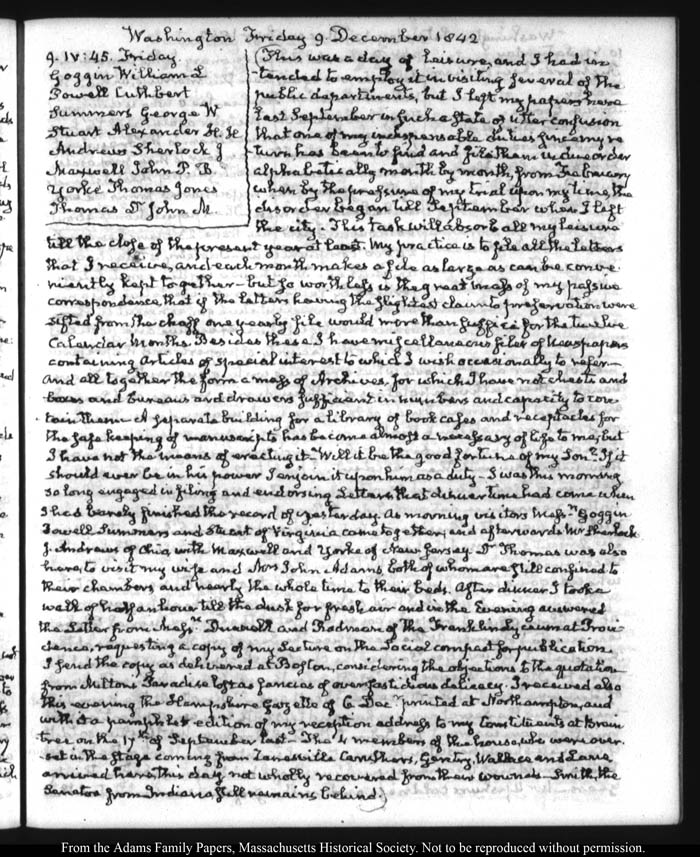 Washington Friday 9. December 1842
9. IV:45. Friday.
Goggin William L
Powell Cuthbert
Summers George W
Stuart Alexander H. H.
Andrews Sherlock J
Maxwell John P. B.
Yorke Thomas Jones
Thomas Dr John M.
This was a day of leisure, and I had in-
-tended to employ it in visiting several of the
public departments, but I left my papers here
last September in such a state of utter confusion
that one of my indispensable duties since my re
turn has been to find and file them in due order
alphabetically month by month, from February
when by the pressure of my trial upon my time, the
disorder began till September when I left
the city. This task will absorb all my leisure
till the close of the present year at least. My practice is to file all the letters
that I receive, and each month makes a file as large as can be conve
niently kept together— but so worthless is the great mass of my passive
correspondence, that if the letters having the slightest claim to preservation were
sifted from the chaff one yearly file would more than suffice for the twelve
Calendar months. Besides these I have miscellaneous files of Newspapers
containing articles of special interest to which I wish occasionally to refer—
and all together the form a mass of Archives, for which I have not chests and
boxes and bureaus and drawers sufficient in numbers and capacity to con
tain them— A separate building for a library of book cases and receptacles for
the safe keeping of manuscripts has become almost a necessary of life to me, but
I have not the means of erecting it— Will it be the good fortune of my Son? If it
should ever be in his power I enjoin it upon him as a duty— I was this morning
so long engaged in filing and endorsing Letters that dinner time had come when
I had barely finished the record of yesterday. As morning visitors Messrs Goggin
Powell Summers and Stuart of Virginia came together, and afterwards Mr Sherlock
J. Andrews of Ohio with Maxwell and Yorke of New Jersey. Dr Thomas was also
here, to visit my wife and Mrs John Adams, both of whom are still confined to
their chambers and nearly the whole time to their beds. After dinner I took a
walk of half an hour till the dusk for fresh air and in the Evening answered
the Letter from Messrs and of the Franklin Lyceum at Provi
dence, requesting a copy of my Lecture on the Social compact for publication
I send the copy as delivered at Boston, considering the objections to the quotation
from Milton's Paradise lost as fancies of over fastidious delicacy. I received also
this evening the Hampshire Gazette of 6. Decr printed at Northampton, and
with it a pamphlet edition of my reception address to my Constituents at Brain
tree on the 17th of September last. The 4 members of the house, who were over-
set in the Stage coming from Zanesville Caruthers, Gentry, Wallace and Lane
arrived here this day not wholly recovered from their wounds— Smith, the
Senator from Indiana, still remains behind.
From the Adams Family Papers, Massachusetts Historical Society. Not to be reproduced without permission.